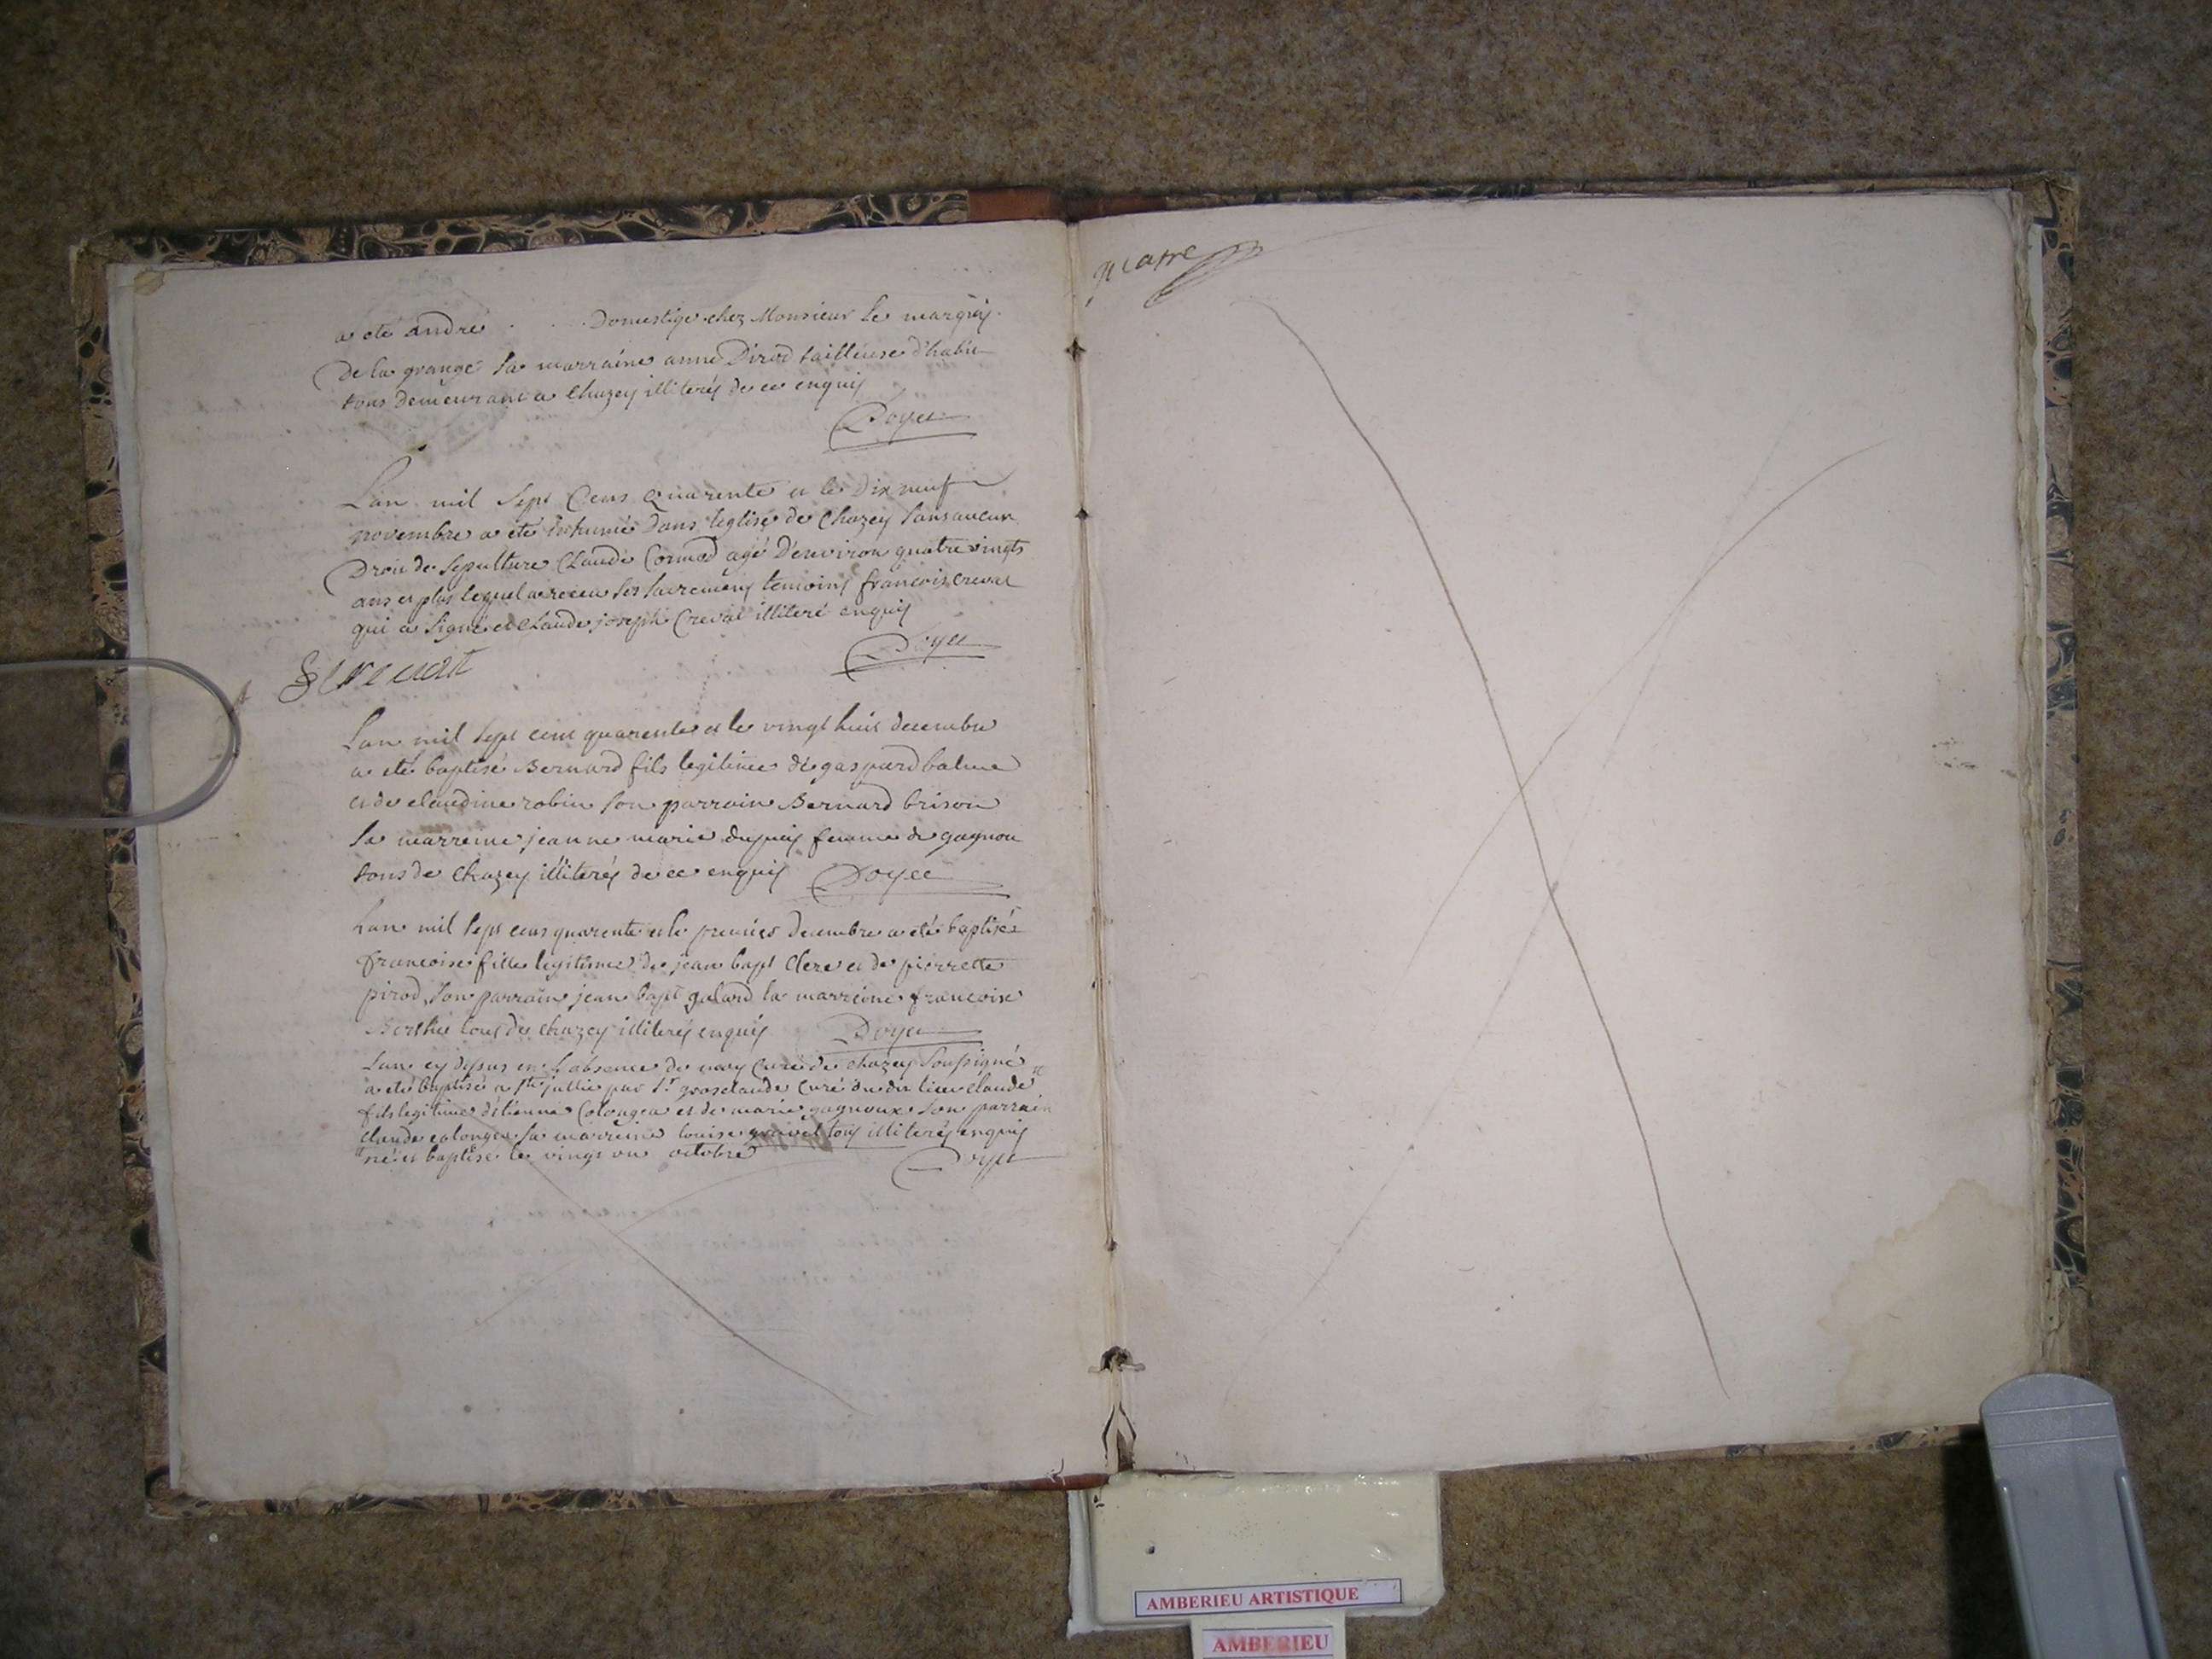 a eté andré . . . . Domestiqe chez Monsieur le marqüis
de la grange la marraine anne Pirod tailleuse d'habit
tous demeurant a Chazey illiterés de ce enquis
Doyet
L'an mil sept Cens quarente et le dix neuf
novembre a eté inhumé dans l'eglise de Chazey sans aucun
Droit de sepulture Claude Cormod agé d'environ quatre vingts
ans et plus lequel a receu ses sacremens temoins françois crevat
qui a signé et Claude joseph Crevat illiteré enquis
Doyet
crevat
L'an mil sept cent quarente et le vingt huit decembre
a eté baptisé Bernard fils legitime de gaspard balme
et de claudine robin son parrain Bernard brison
la marreine jeanne marie dupuis femme de gagnou
tous de Chazey illiterés de ce enquis Doyet
L'an mil sept cens quarente et le premier decembre a eté baptisée
françoise fille legitime de jean bapt Clere et de pierrette
pirod, son parrain jean bapt galard la marreine françoise
Berthié tous de chazey illiterés enquis Doyet
L'an cy dessus en l'absence de moy Curé de chazey soussigné
a eté baptisé a Ste jullie par Sr grosclaude Curé du dit lieu claude
fils legitime d'etienne Colonge et de marie gagnoux son parrain
claude colonge la marreine louise gravel tous illiterés enquis
né et baptisé le vingt un octobre
Doyet
AMBERIEU ARTISTIQUE
AMBERIEU